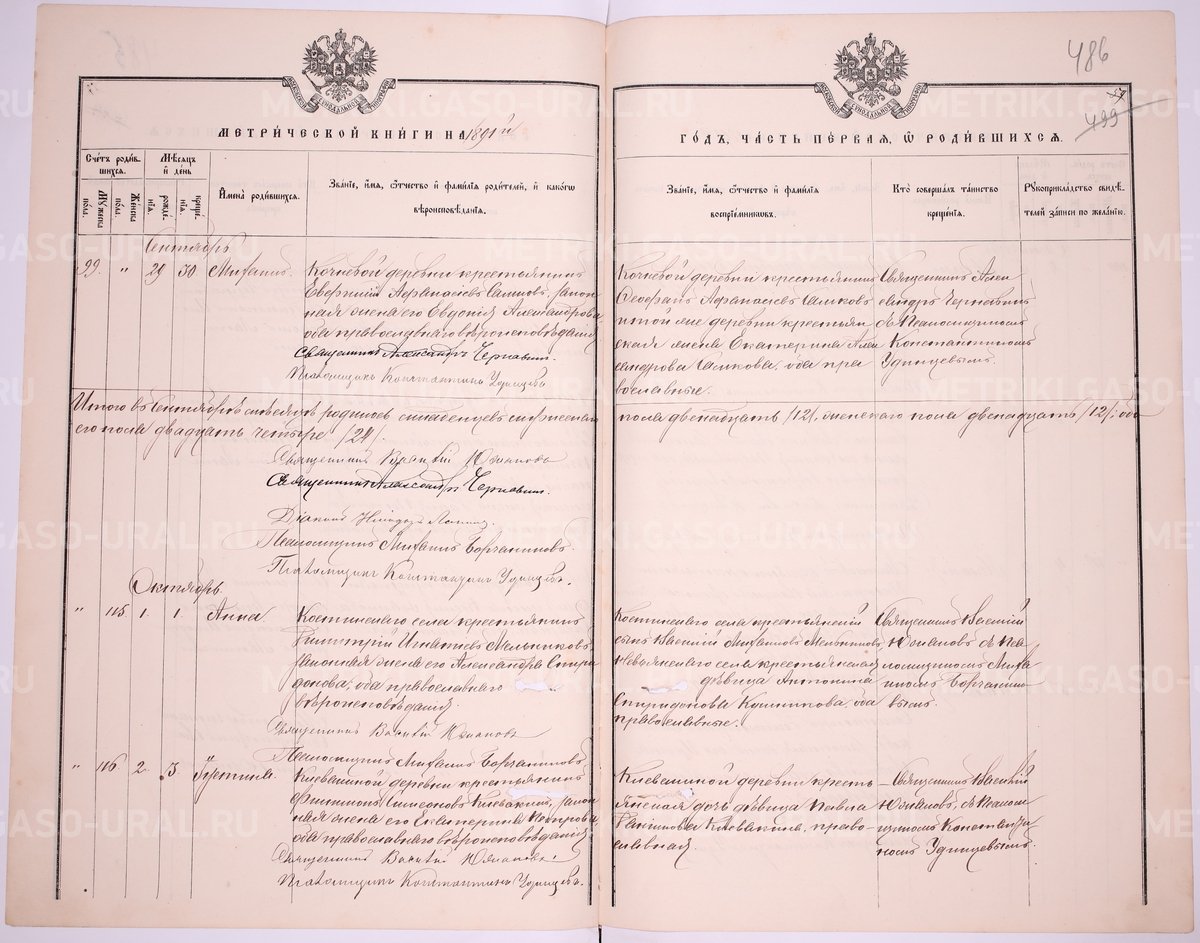 486
57
499
МЕТРИ́ЧЕСКОЙ КНИ́ГИ НА 1891й
ГО́ДЪ, ЧА́СТЬ ПЕ́РВАЯ, Ѡ РОДИ́ВШИХСѦ.
Счетъ роди́вшихся.
Мѣсяцъ и день
Мужеска пола.
Женска пола.
рожденія.
крещенія.
Имена̀ роди́вшихся.
Зва́ніе, и́мя, ѻтчество и̂ фами́лїа роди́телей, и̂ како́гѡ
вѣроисповѣ́данїа.
Зва́ніе, и́мя, ѻтчество и̂ фами́лїа
воспрїе́мниковъ.
Кто̀ соверша́лъ та́инство
креще́нїа.
Рꙋкоприкла́дство свидѣ́-
телей за́писи по жела́нїю.
Сентябрь.
99. " 29 30 Михаилъ.
Кочневой деревни крестьянинъ
Евгений Афанасіевъ, закон
ная жена его Евдокія Александрова
оба православнаго вѣроисповѣданія
Священникъ Александръ Чернавинъ.
Псаломщикъ Константинъ Удинцевъ
Кочневой деревни крестьянинъ
Феофанъ Афанасіевъ
и той же деревни крестьян
ская жена Екатерина Алек
сандрова оба пра
вославные.
Священникъ Алек
сандръ Чернавинъ
съ Псаломщикомъ
Константиномъ
Удинцевымъ.
Итого въ Сентябрѣ мѣсяцѣ родилось младенцевъ мужеска
го пола двѣнадцать /12/, женскаго пола двѣнадцать /12/. обо
двадцать четыре /24/.
Священникъ Василій Южаковъ
Священникъ Александръ Чернавинъ.
Діаконъ
Псаломщикъ Михаилъ Борчаниновъ.
Псаломщикъ Константинъ Удинцевъ.
Октябрь.
" 115 1. 1. Анна.
Костинскаго села крестьянинъ
Димитрій Игнатіевъ Мельниковъ,
законная жена его Александра Спири
донова, оба православнаго
вѣроисповѣданія.
Священникъ Василій Южаковъ
Псаломщикъ Михаилъ Борчаниновъ.
Костинскаго села крестьянскій
сынъ Василій Михаиловъ Мельниковъ,
Невьянскаго села крестьянская
дѣвица Антонина
Спиридонова оба
православные.
Священникъ Василій
Южаковъ съ Пса
ломщикомъ Миха
иломъ Борчанино
вымъ.
" 116 2. 3. Іустина.
Киевакиной деревни крестьянинъ
Филимонъ Симеоновъ Кивакинъ, закон
ная жена его Екатерина Петрова
оба православнаго вѣроисповѣданія
Священникъ Василій Южаковъ.
Псаломщикъ Константинъ Удинцевъ.
деревни кресть
янская дочь дѣвица Павла
право
славная
Священникъ Василій
Южаковъ, съ Псалом
щикомъ Констан
номъ Удинцевымъ.
METRIKI.GASO-URAL.RU